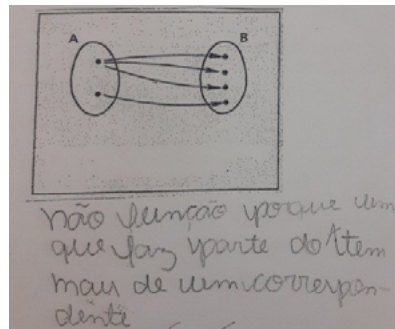 A B
não função porque um
que faz parte do A tem
mais de um correspon-
dente